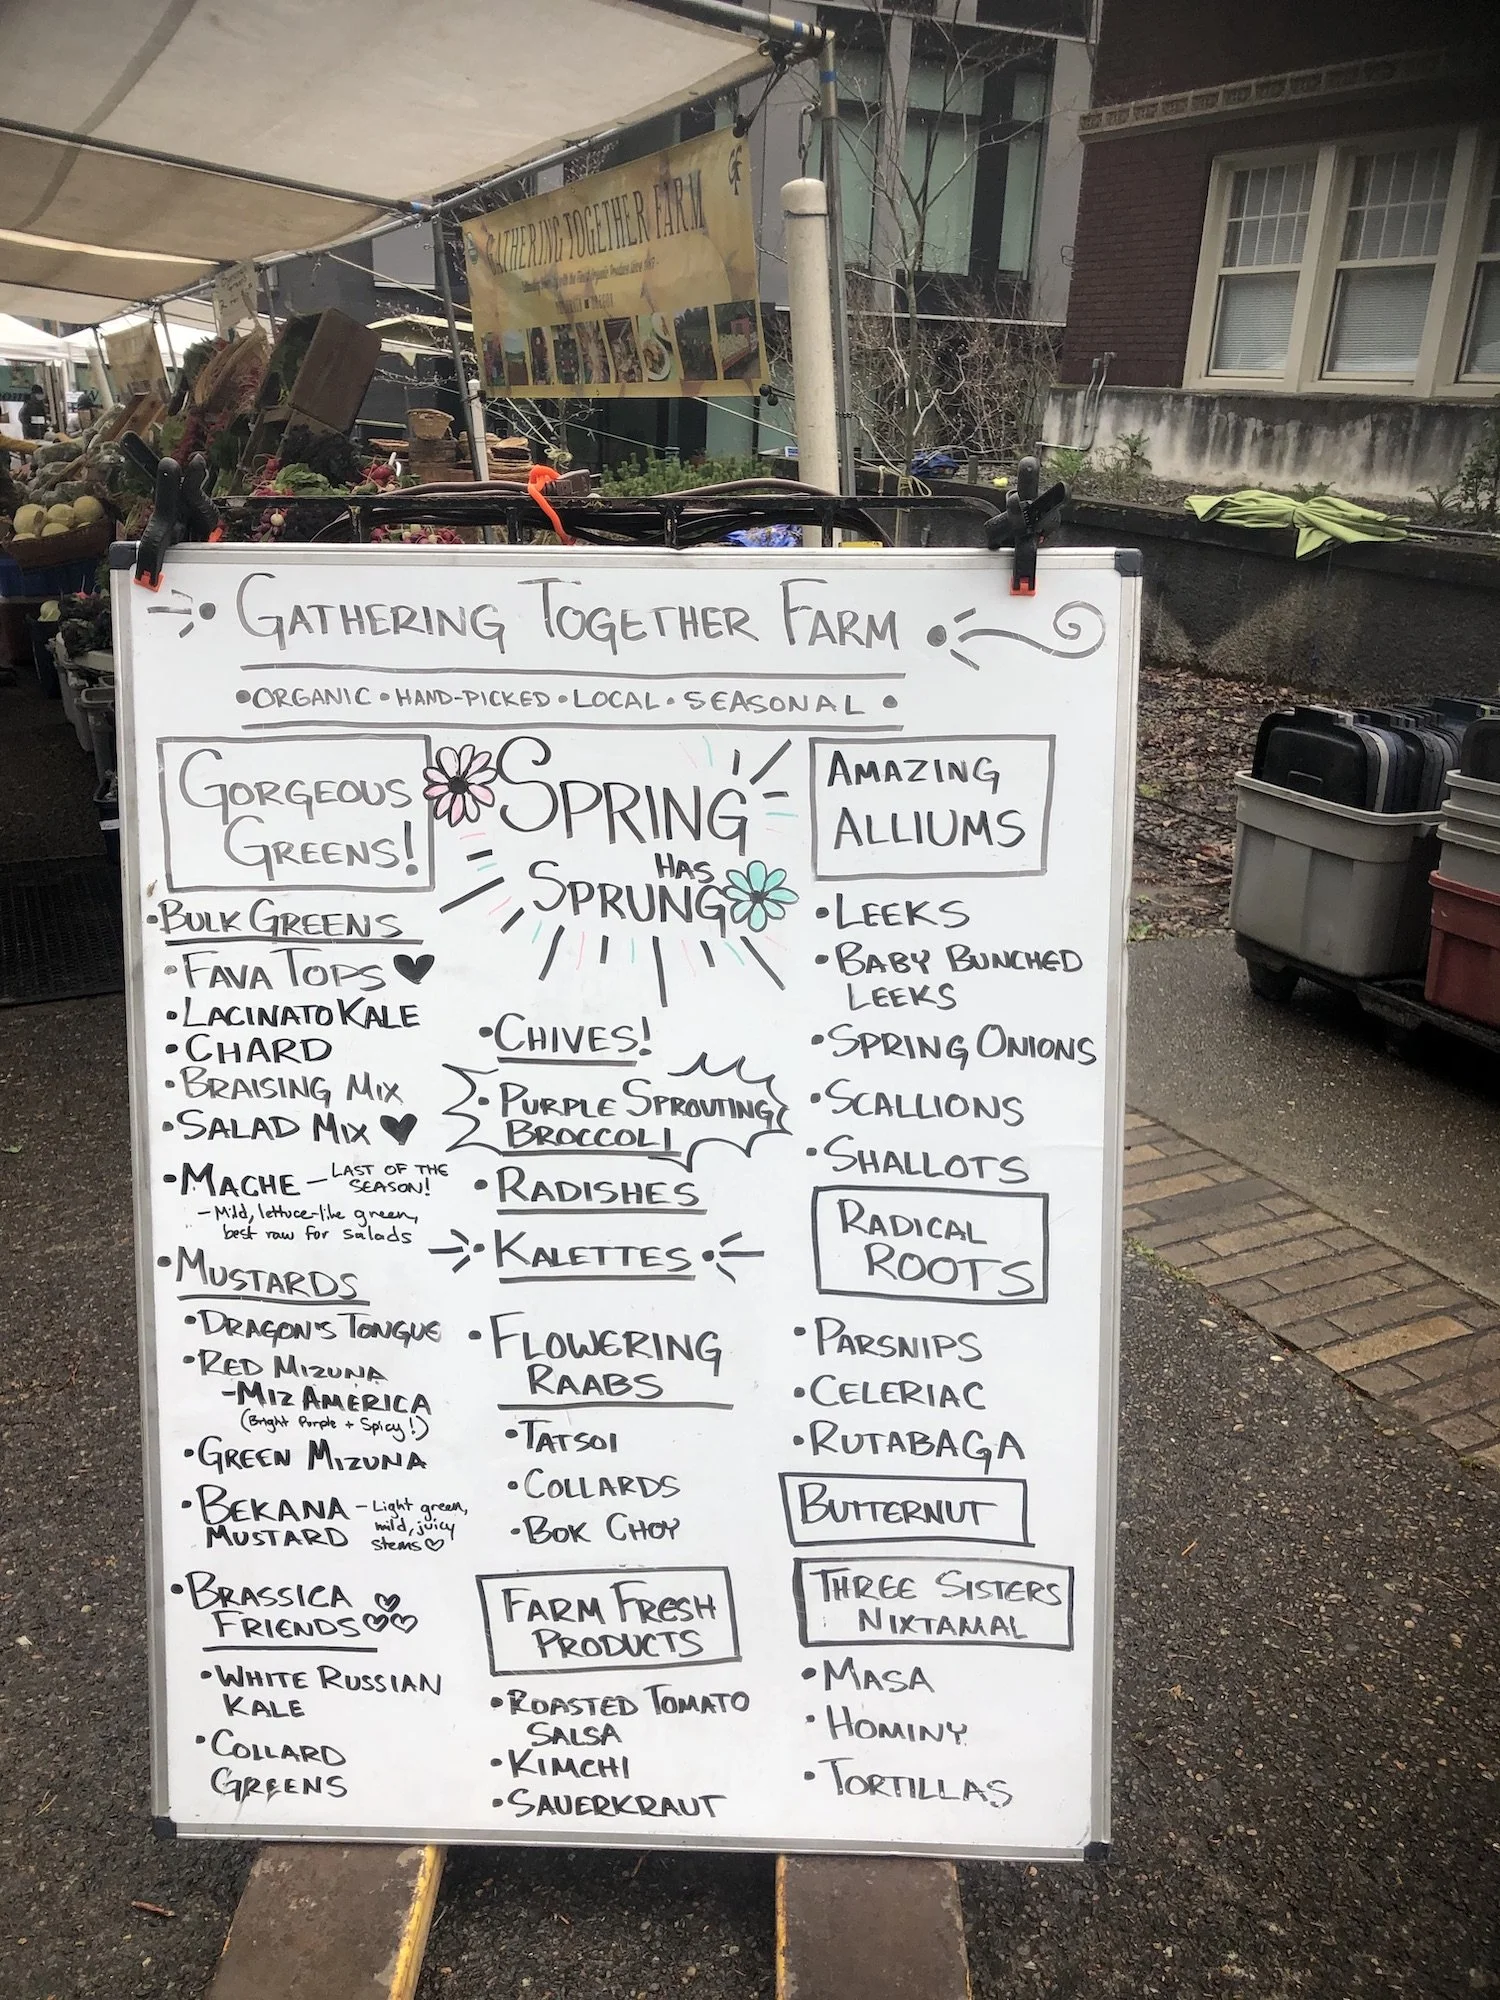 GATHERING TOGETHER FARM
GATHERING TOGETHER FARM
• ORGANIC • HAND-PICKED • LOCAL • SEASONAL •
GORGEOUS
GREENS!
• BULK GREENS
• FAVA TOPS ♥
• LACINATO KALE
• CHARD
• BRAISING MIX
• SALAD MIX ♥
• MACHE – LAST OF THE
SEASON!
– Mild, lettuce-like green,
best raw for salads
• MUSTARDS
• DRAGON'S TONGUE
• RED MIZUNA
– MIZ AMERICA
(Bright Purple + Spicy!)
• GREEN MIZUNA
• BEKANA – Light green,
MUSTARD mild, juicy
stems ♡
• BRASSICA
FRIENDS ♡♡♡
• WHITE RUSSIAN
KALE
• COLLARD
GREENS
SPRING
HAS
SPRUNG
• CHIVES!
• PURPLE SPROUTING
BROCCOLI
• RADISHES
• KALETTES •
• FLOWERING
RAABS
• TATSOI
• COLLARDS
• BOK CHOY
FARM FRESH
PRODUCTS
• ROASTED TOMATO
SALSA
• KIMCHI
• SAUERKRAUT
AMAZING
ALLIUMS
• LEEKS
• BABY BUNCHED
LEEKS
• SPRING ONIONS
• SCALLIONS
• SHALLOTS
RADICAL
ROOTS
• PARSNIPS
• CELERIAC
• RUTABAGA
BUTTERNUT
THREE SISTERS
NIXTAMAL
• MASA
• HOMINY
• TORTILLAS